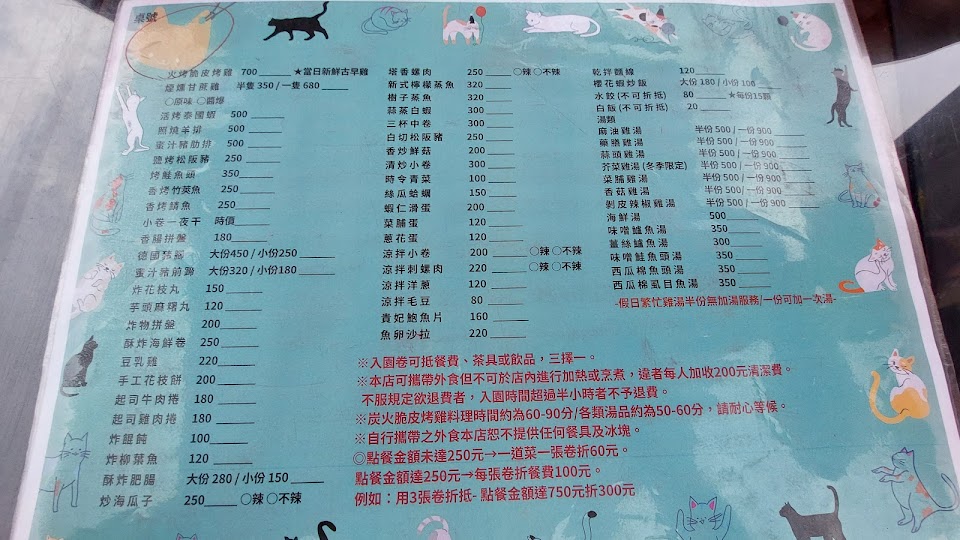 桌號
火烤脆皮烤雞 700 ★當日新鮮古早雞
煙燻甘蔗雞 半隻 350 / 一隻 680
○原味 ○醬爆
活烤泰國蝦 500
照燒羊排 500
蜜汁豬肋排 500
鹽烤松阪豬 250
烤鮭魚頭 350
香烤竹莢魚 250
香烤鯖魚 250
小卷一夜干 時價
香腸拼盤 180
德國豬腳 大份450 / 小份250
蜜汁豬前腳 大份320 / 小份180
炸花枝丸 150
芋頭麻糬丸 120
炸物拼盤 200
酥炸海鮮卷 250
豆乳雞 220
手工花枝餅 200
起司牛肉捲 180
起司雞肉捲 180
炸餛飩 100
炸柳葉魚 120
酥炸肥腸 大份 280 / 小份 150
炒海瓜子 250 ○辣 ○不辣
塔香螺肉 250 ○辣 ○不辣
新式檸檬蒸魚 320
樹子蒸魚 320
蒜蒸白蝦 300
三杯中卷 300
白切松阪豬 250
香炒鮮菇 200
清炒小卷 300
時令青菜 100
絲瓜蛤蠣 150
蝦仁滑蛋 200
菜脯蛋 120
蔥花蛋 120
涼拌小卷 200 ○辣 ○不辣
涼拌刺螺肉 220 ○辣 ○不辣
涼拌洋蔥 120
涼拌毛豆 80
貴妃鮑魚片 160
魚卵沙拉 220
乾拌麵線 120
櫻花蝦炒飯 大份 180 / 小份 100
水餃(不可折抵) 80 ★每份15顆
白飯(不可折抵) 20
湯類
麻油雞湯 半份 500 / 一份 900
藥膳雞湯 半份 500 / 一份 900
蒜頭雞湯 半份 500 / 一份 900
芥菜雞湯 (冬季限定) 半份 500 / 一份 900
菜脯雞湯 半份 500 / 一份 900
香菇雞湯 半份 500 / 一份 900
剝皮辣椒雞湯 半份 500 / 一份 900
海鮮湯 500
味噌鱸魚湯 350
薑絲鱸魚湯 300
味噌鮭魚頭湯 350
西瓜棉魚頭湯 350
西瓜棉虱目魚湯 350
-假日繁忙雞湯半份無加湯服務/一份可加一次湯-
※入園卷可抵餐費、茶具或飲品，三擇一。
※本店可攜帶外食但不可於店內進行加熱或烹煮，違者每人加收200元清潔費。
不服規定欲退費者，入園時間超過半小時者不予退費。
※炭火脆皮烤雞料理時間約為60-90分/各類湯品約為50-60分，請耐心等候。
※自行攜帶之外食本店恕不提供任何餐具及冰塊。
◎點餐金額未達250元→一道菜一張卷折60元。
點餐金額達250元→每張卷折餐費100元。
例如：用3張卷折抵- 點餐金額達750元折300元